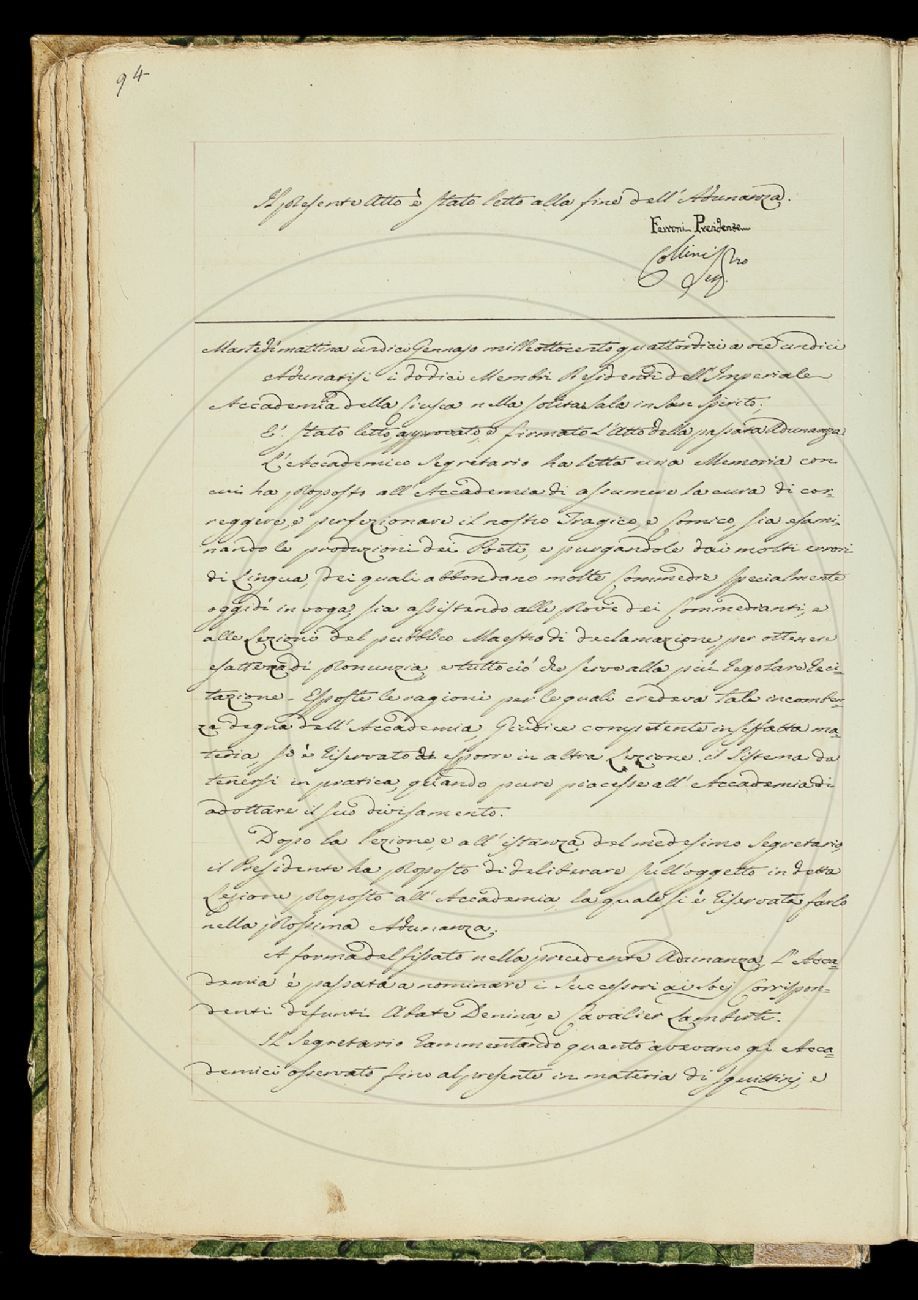 94
Il presente Atto è stato letto alla fine dell'Adunanza.
Ferroni Presidente
Collini Seg.rio
Martedì mattina undici Gennajo mille ottocento quattordici a ore undici
Adunatisi i dodici Membri Residenti dell'Imperiale
Accademia della Crusca nella solita Sala in San Spirito;
E' stato letto, approvato, e firmato l'Atto della passata Adunanza.
L'Accademico Segretario ha letta una Memoria con
cui ha proposto all'Accademia di assumere la cura di cor=
reggere, e perfezionare il nostro Tragico, e Comico, sia esami=
nando le produzioni dei Poeti, e purgandole dai molti errori
di Lingua, dei quali abbondano molte Commedie specialmente
oggidì in voga, sia assistendo alle Prove dei Commedianti, e
alle Lezioni del pubblico Maestro di declamazione per ottenere
esattezza di pronunzia, e tutto ciò che serve alla più regolare reci=
tazione. Esposte le ragioni per le quali credeva tale incomben=
za degna dell'Accademia, Giudice competente in siffatta ma=
teria, si è riservato di esporre in altra Lezione il Sistema da
tenersi in pratica, quando pure piacesse all'Accademia di
adottare il suo divisamento.
Dopo la lezione, e all'istanza del medesimo Segretario
il Presidente ha proposto di deliberare sull'oggetto in detta
Lezione proposto all'Accademia, la quale si è riservata farlo
nella prossima Adunanza.
A forma del fissato nella precedente Adunanza, l'Acca=
demia è passata a nominare i Successori ai Socj Corrispon=
denti defunti Abate Denina, e Cavalier Lamberti.
Il Segretario rammentando quanto avevano gli Acca=
demici osservato fino al presente in materia di squittinj, e